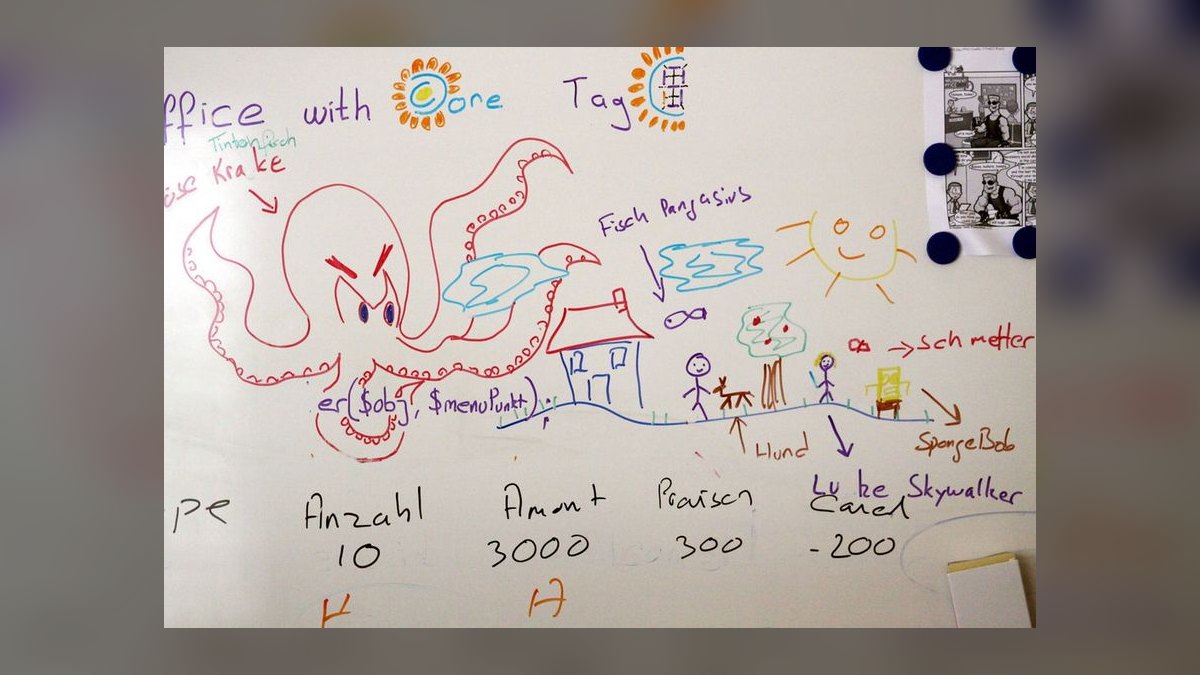 ffice with Core Tag
Tintenfisch
öse Krake
Fisch Pangasius
→ Schmetter
er($obj, $menuPunkt)
Hund
SpongeBob
Luke Skywalker
pe Anzahl Amont Praisen Cancel
10 3000 300 -200